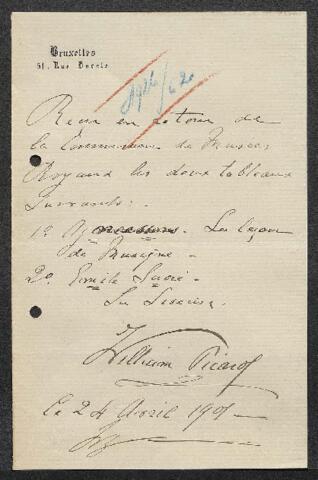 Bruxelles
51, Rue Ducale
1926/62
Reçu en retour de
la Commission du Musées
Royaux les deux tableaux
suivants:
1° La leçon
de Musique
2° Emile
La
William Picard
Le 24 Avril 190